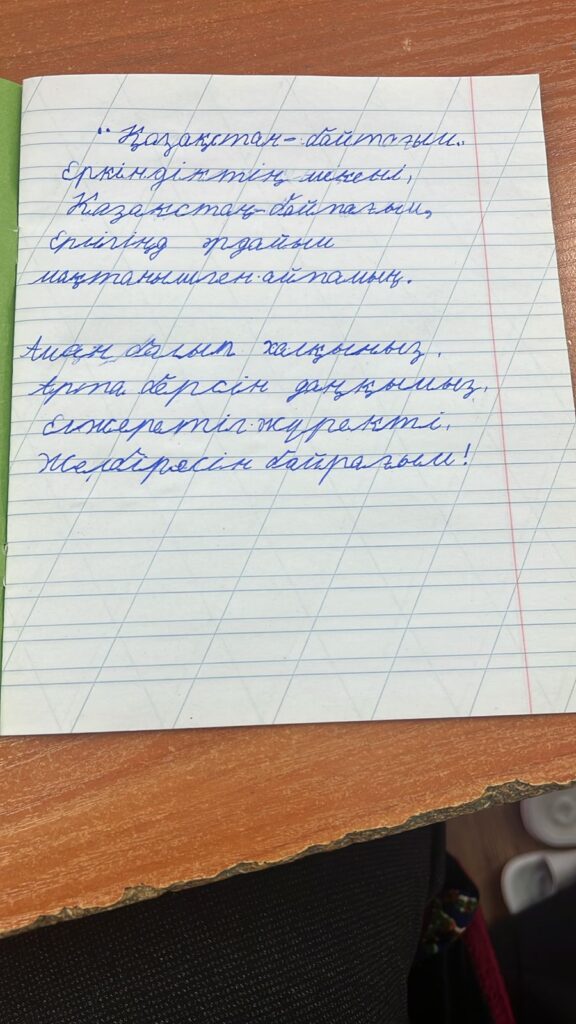 "Қазақстан-байтағым.
Еркіндіктің мекені,
Казакстан-байтағым,
Ерлігіңд әрдайым
мақтанышпен айтамың.
Аман бағып халқыныз,
Арта берсін даңқымыз,
Елжеретіл жүректі,
Желбіресін байрағым!